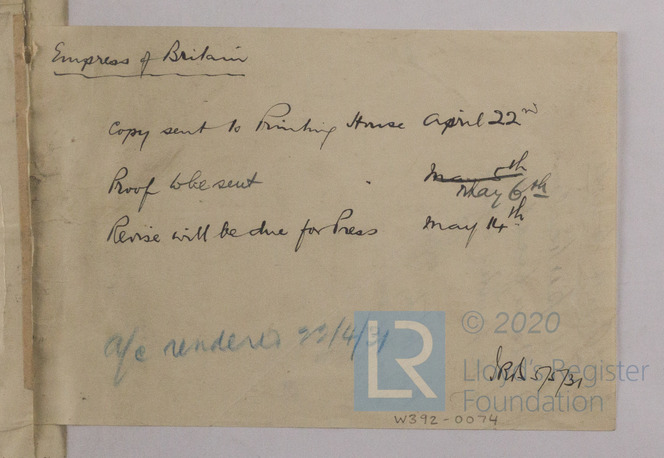 Empress of Britain
Copy sent to Printing House April 22nd
Proof to be sent May 5th
May 6th
Revise will be due for Press May 14th
a/c rendered 22/4/31
5/5/31
LR
© 2020
Lloyd's Register
Foundation
W392-0074